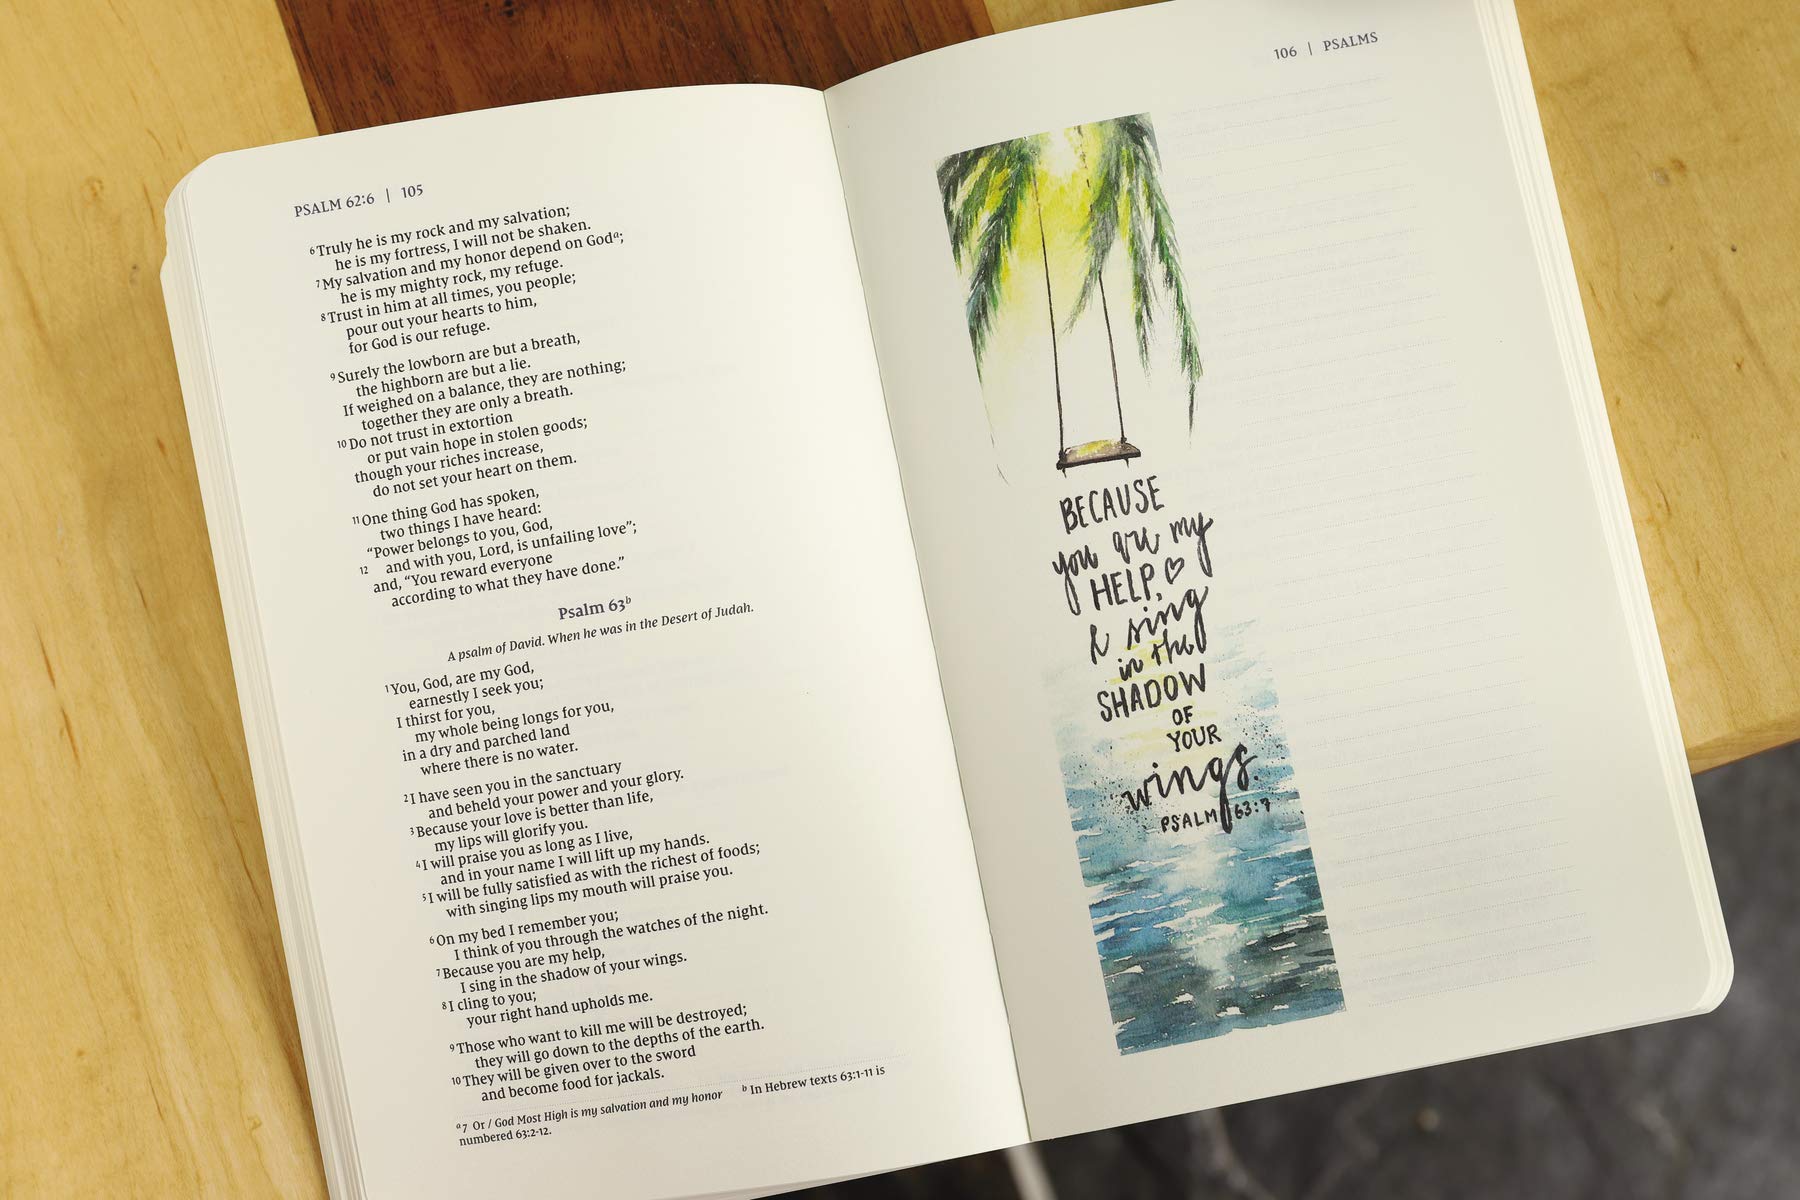 PSALM 62:6 | 105
6 Truly he is my rock and my salvation;
he is my fortress, I will not be shaken.
7 My salvation and my honor depend on God a;
he is my mighty rock, my refuge.
8 Trust in him at all times, you people;
pour out your hearts to him,
for God is our refuge.
9 Surely the lowborn are but a breath,
the highborn are but a lie.
If weighed on a balance, they are nothing;
together they are only a breath.
10 Do not trust in extortion
or put vain hope in stolen goods;
though your riches increase,
do not set your heart on them.
11 One thing God has spoken,
two things I have heard:
“Power belongs to you, God,
12 and with you, Lord, is unfailing love”;
and, “You reward everyone
according to what they have done.”
Psalm 63 b
A psalm of David. When he was in the Desert of Judah.
1 You, God, are my God,
earnestly I seek you;
I thirst for you,
my whole being longs for you,
in a dry and parched land
where there is no water.
2 I have seen you in the sanctuary
and beheld your power and your glory.
3 Because your love is better than life,
my lips will glorify you.
4 I will praise you as long as I live,
and in your name I will lift up my hands.
5 I will be fully satisfied as with the richest of foods;
with singing lips my mouth will praise you.
6 On my bed I remember you;
I think of you through the watches of the night.
7 Because you are my help,
I sing in the shadow of your wings.
8 I cling to you;
your right hand upholds me.
9 Those who want to kill me will be destroyed;
they will go down to the depths of the earth.
10 They will be given over to the sword
and become food for jackals.
a 7 Or / God Most High is my salvation and my honor b In Hebrew texts 63:1-11 is
numbered 63:2-12.
106 | PSALMS
BECAUSE
you are my
HELP, ♡
I sing
in the
SHADOW
OF
YOUR
wings.
PSALM 63:7